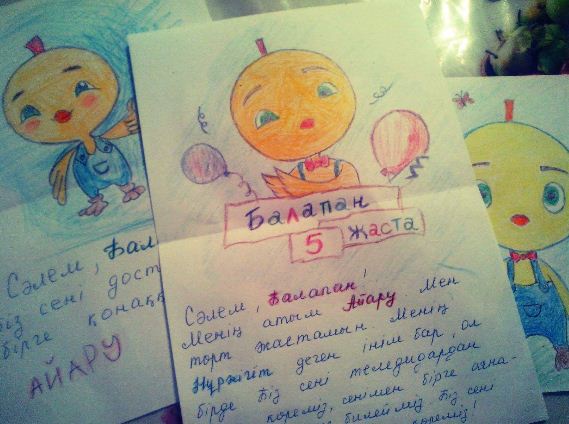 Сәлем, Бала
Біз сені дост
бірге қонаққ
АЙАРУ
Балапан
5 жаста
Сәлем, Балапан!
Менің атым Айару Мен
төрт жастамын. Менің
Нұржігіт деген інім бар, ол
бірде Біз сені теледидардан
көреміз, сенімен бірге
билейміз. Біз сені
көреміз!